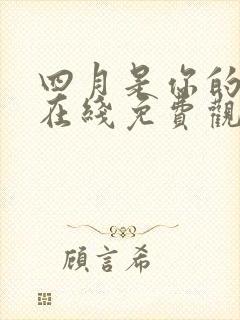 四月是你的
在綫免費觀
顧言希